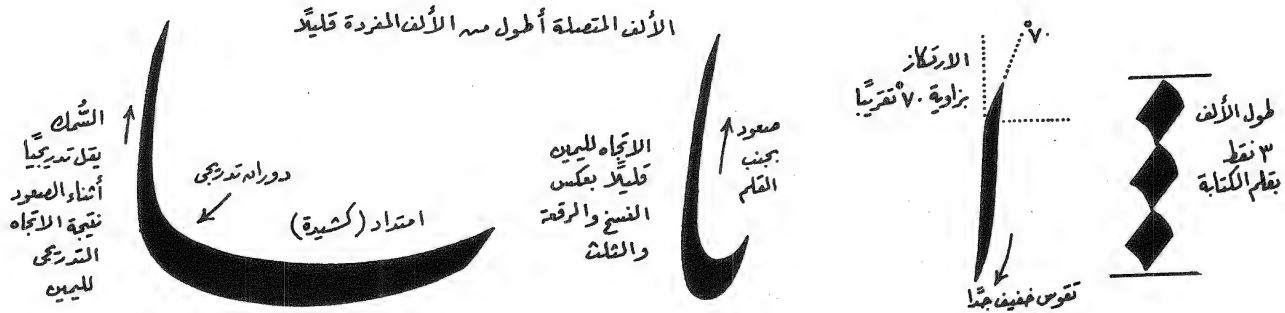 الألف المتصلة أطول من الألف المفردة قليلًا
طول الألف
٣ نقط
بقلم الكتابة
٧٠°
الارتكاز
بزاوية ٧٠° تقريبًا
تقوس خفيف جدًا
صعود
بجنب
القلم
الاتجاه لليمين
قليلًا بعكس
النسخ والرقعة
والثلث
امتداد (كشيدة)
دوران تدريجى
السُمك
يقل تدريجيًا
أثناء الصعود
نتيجة الاتجاه
التدريجى
لليمين